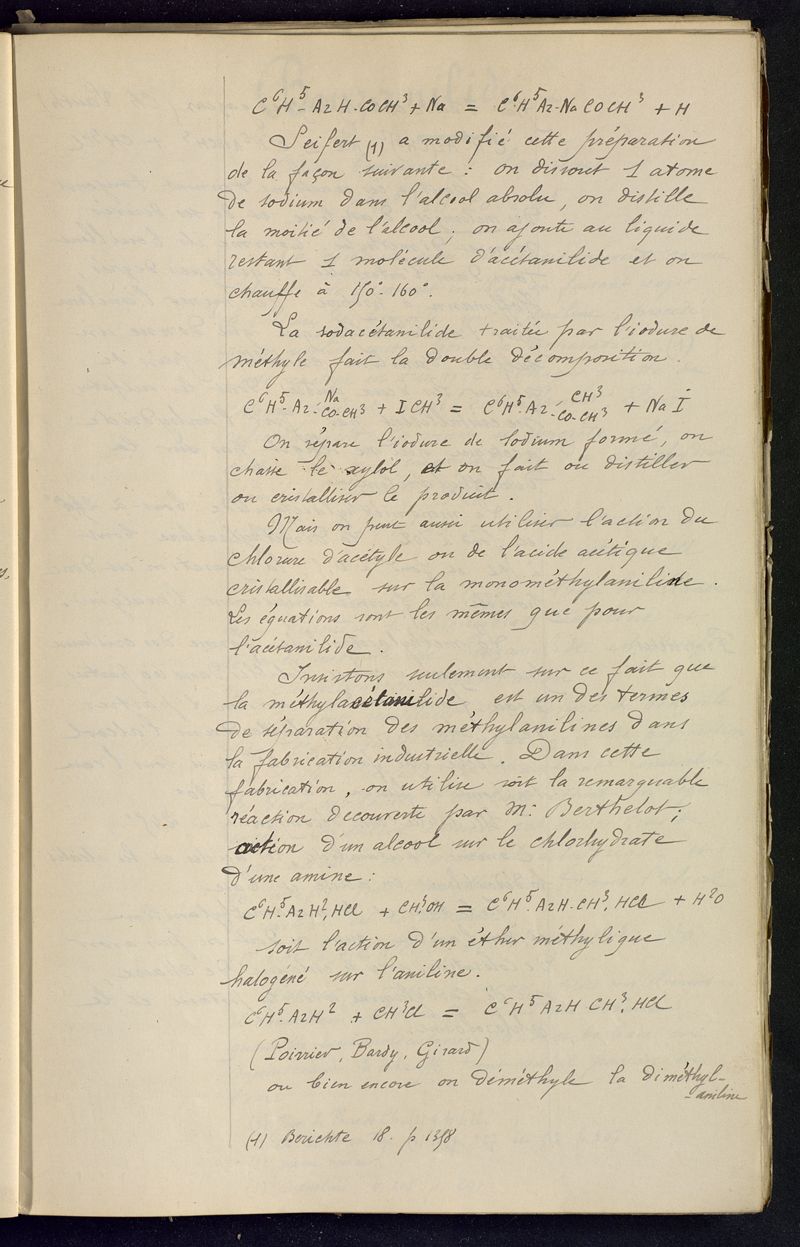 C⁶H⁵-AzH-COCH³ + Na = C⁶H⁵Az-NaCOCH³ + H
Seifert (1) a modifié cette préparation
de la façon suivante : on dissout 1 atome
de sodium dans l'alcool absolu, on distille
la moitié de l'alcool ; on ajoute au liquide
restant 1 molécule d'acétanilide et on
chauffe à 150°-160°.
La sodacétanilide traitée par l'iodure de
méthyle fait la double décomposition.
C⁶H⁵-Az-Na CO-CH³ + ICH³ = C⁶H⁵-Az-CH³ CO-CH³ + NaI
On sépare l'iodure de sodium formé, on
chasse le xylol, et on fait ou distiller
ou cristalliser le produit.
Mais on peut aussi utiliser l'action du
chlorure d'acétyle ou de l'acide acétique
cristallisable sur la monométhylaniline.
Les équations sont les mêmes que pour
l'acétanilide.
Insistons seulement sur ce fait que
la méthylacétanilide est un des termes
de séparation des méthylanilines dans
la fabrication industrielle. Dans cette
fabrication, on utilise soit la remarquable
réaction découverte par M. Berthelot ;
action d'un alcool sur le chlorhydrate
d'une amine :
C⁶H⁵-AzH²,HCl + CH³OH = C⁶H⁵-AzH-CH³,HCl + H²O
soit l'action d'un éther méthylique
halogéné sur l'aniline.
C⁶H⁵-AzH² + CH³Cl = C⁶H⁵AzHCH³,HCl
(Poirrier, Bardy, Girard)
ou bien encore on déméthyle la diméthyl-
aniline
(1) Berichte 18. p 1358